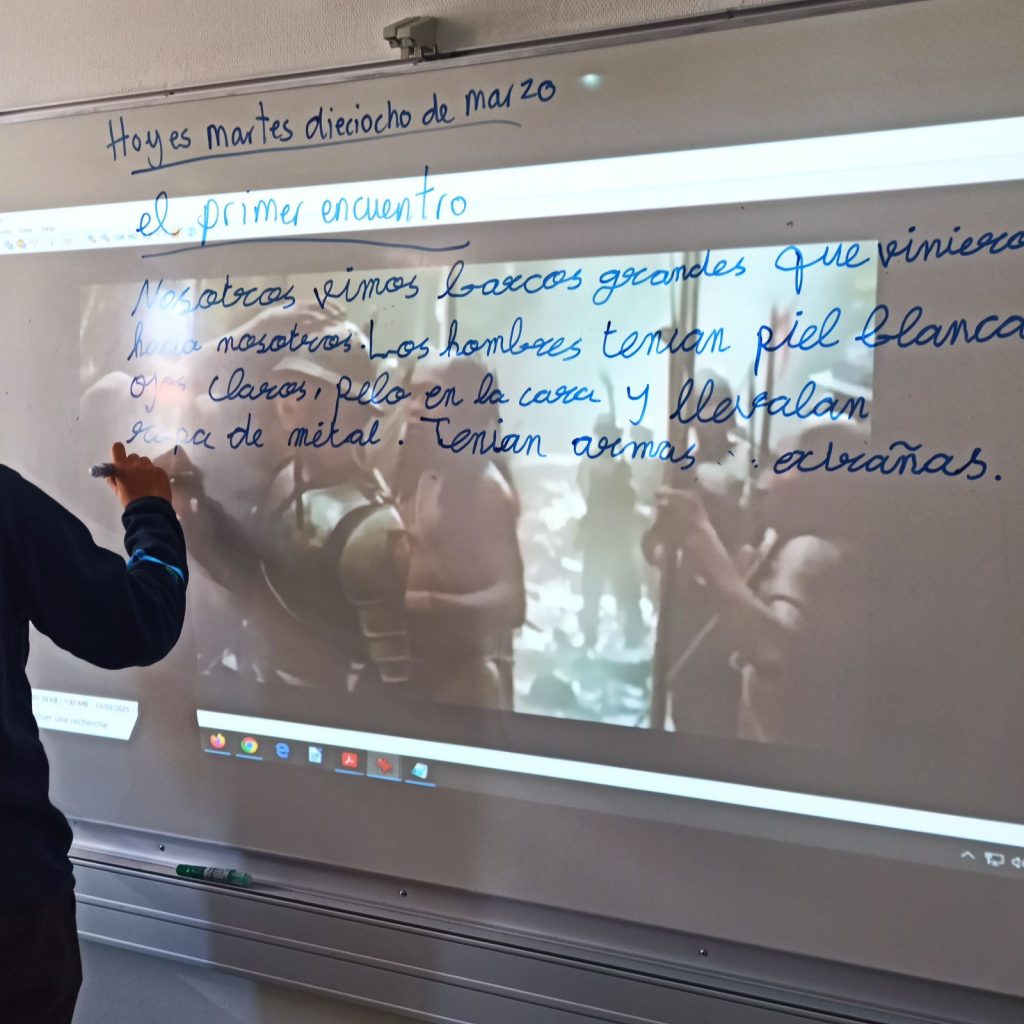 Hoy es martes dieciocho de marzo
el primer encuentro
Nosotros vimos barcos grandes que viniero
hacia nosotros. Los hombres tenian piel blanca
ojos claros, pelo en la cara y llevalan
ropa de métal. Tenian armas extrañas.
uer une recherche